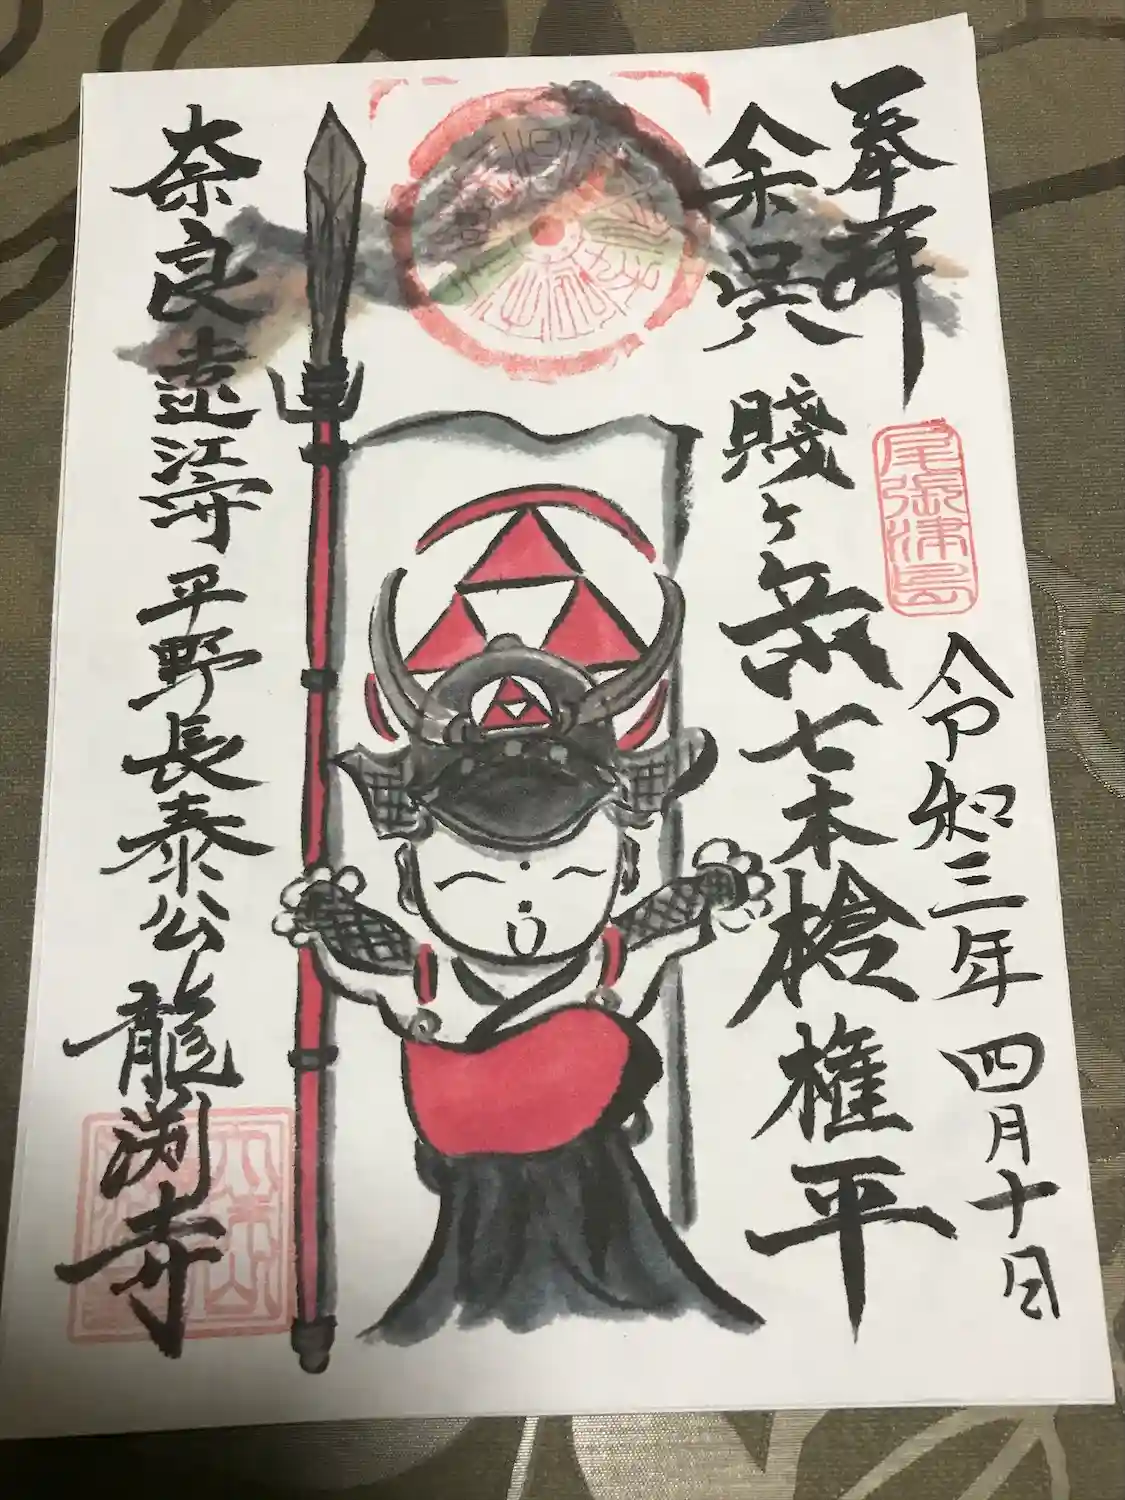 奉拝
尾張津島
令和三年四月十日
余呉
賤ヶ岳七本槍権平
奈良遠江守平野長泰公
龍渕寺